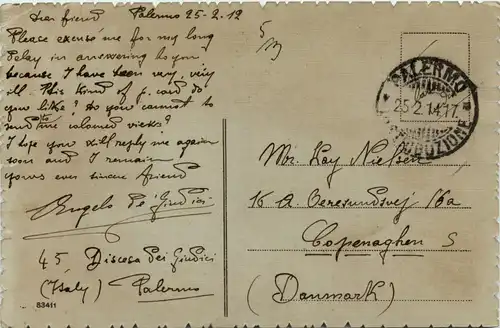 Dear friend Palermo 25-2-12
Please excuse me for my long
delay in answering to you
because I have been very, very
ill. This kind of p. card do
you like? do you cannot to
send me coloured views?
I hope you will reply me again
soon and I remain
yours ever sincere friend
Angelo de' Giudici
45 Discesa dei Giudici
(Italy) Palermo
83411
5
PALERMO
25.2.14.17
Mr. Kay Nielsen
16 A. Oeresundsvej 16a
Copenaghen S
(Danmark)